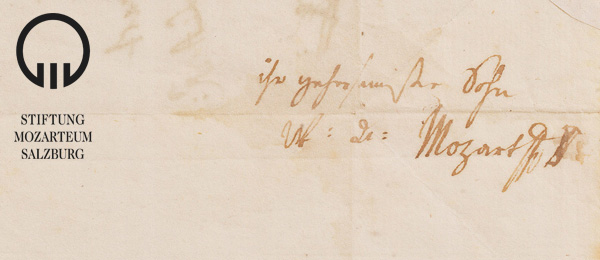 STIFTUNG
MOZARTEUM
SALZBURG
ihr gehorsamster Sohn
W: A: Mozart